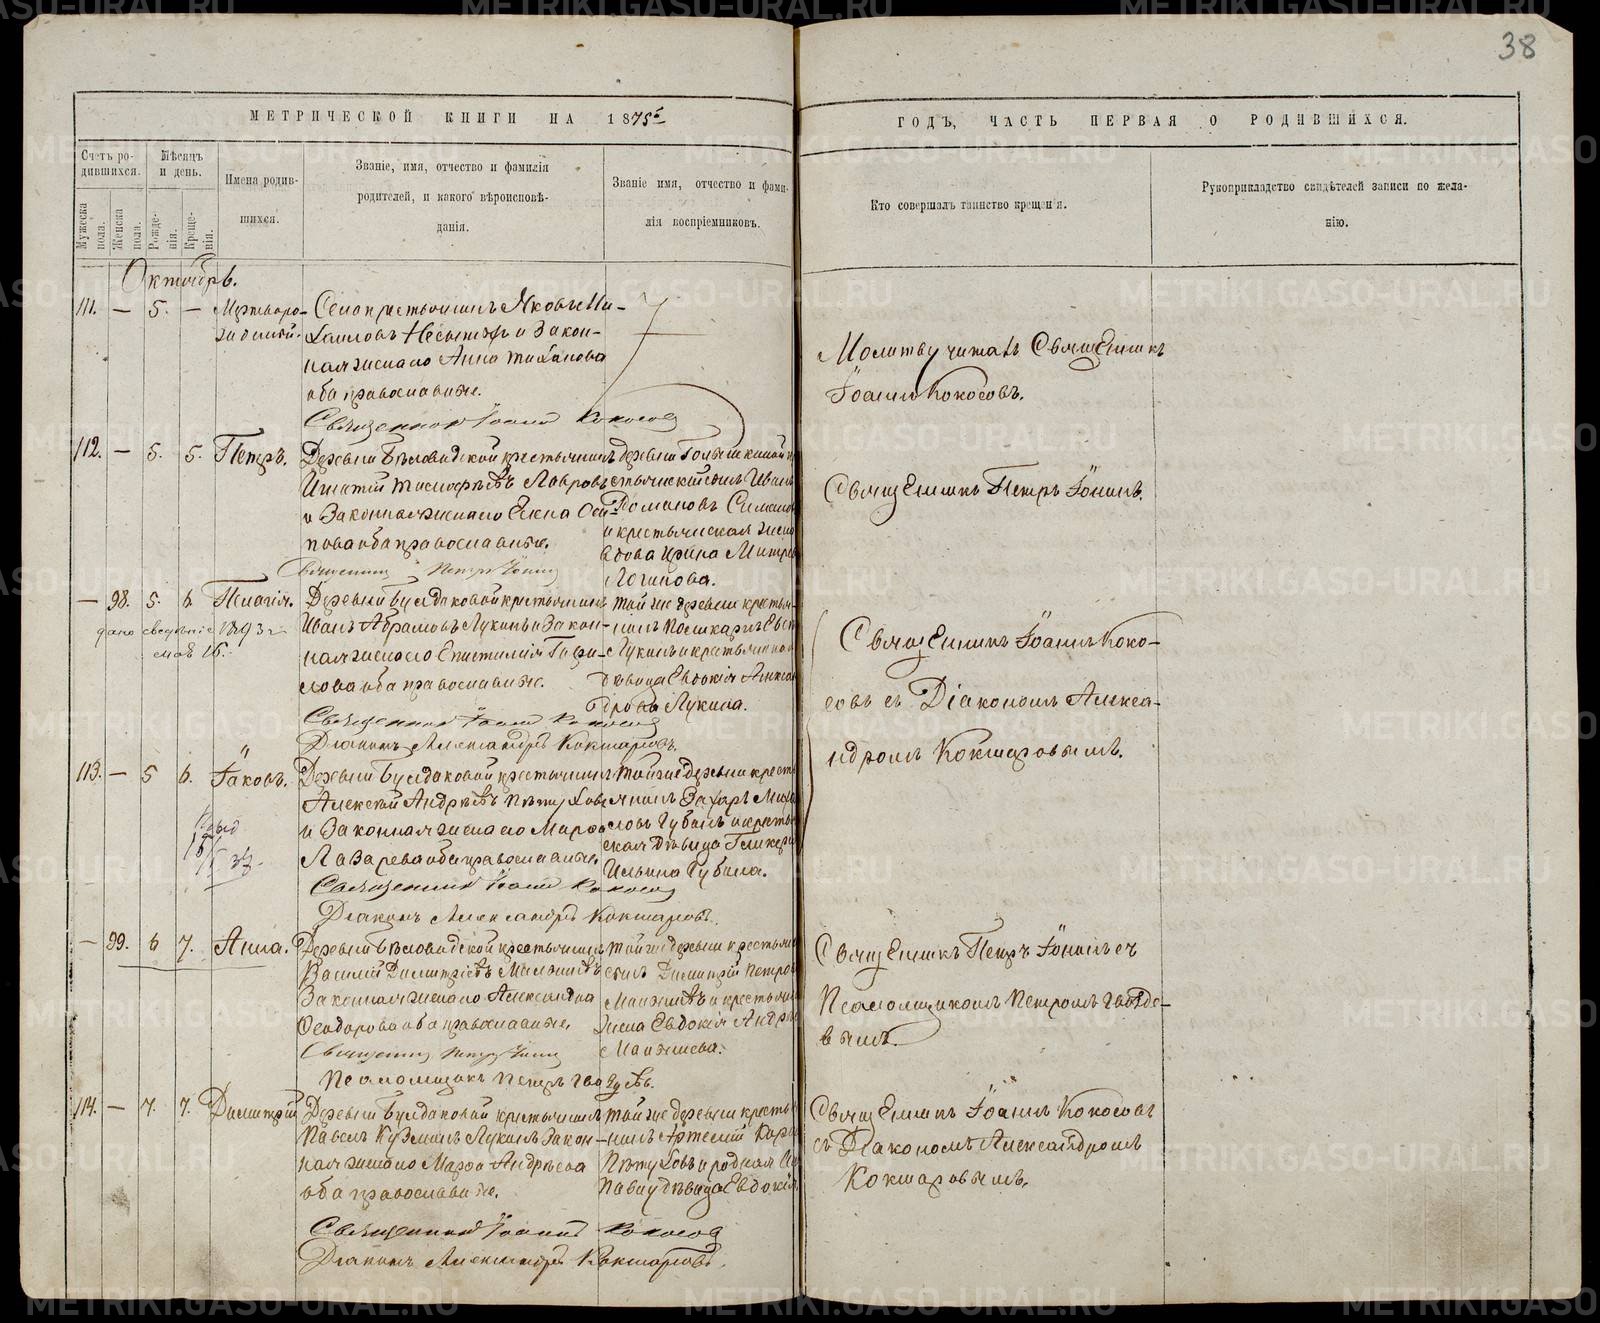 38
МЕТРИЧЕСКОЙ КНИГИ НА 1875й
ГОДЪ, ЧАСТЬ ПЕРВАЯ О РОДИВШИХСЯ.
Счетъ ро-
дившихся.
Мужеска
пола.
Женска
пола.
Мѣсяцъ
и день.
Рожде-
нія.
Креще-
нія.
Имена родив-
шихся.
Званіе, имя, отчество и фамилія
родителей, и какого вѣроисповѣ-
данія.
Званіе имя, отчество и фами-
лія воспріемниковъ.
Кто совершалъ таинство крещенія.
Рукоприкладство свидѣтелей записи по жела-
нію.
Октябрь.
111. — 5. —
Мертворо-
жденный.
Села крестьянинъ Яковъ Ми-
хайловъ и закон-
ная жена его Анна
оба православные.
Священникъ Іоаннъ Кокосовъ
Молитву читалъ Священникъ
Іоаннъ Кокосовъ.
112. — 5. 5. Петръ.
Деревни Бѣловодской крестьянинъ
Игнатій Тимофѣевъ Лавровъ
и законная жена его Елена Оси-
пова оба православные.
Священникъ Петръ Іонинъ
деревни
Иванъ
Домановъ
и крестьянская
вдова Ирина
Логинова.
Священникъ Петръ Іонинъ.
— 98. 5. 6. Пелагія.
дано сведѣніе 1893 г.
мая 16.
Деревни Булдаковой крестьянинъ
Иванъ Абрамовъ Лукинъ и закон-
ная жена его Епистимія Гаври-
лова оба православные.
Священникъ Іоаннъ Кокосовъ
Діаконъ Александръ Кокшаровъ.
той же деревни крестья-
нинъ
Лукинъ и крестьянская
дѣвица Евдокія Алекса
дрова Лукина.
Священникъ Іоаннъ Коко-
совъ съ Діакономъ Алекса-
ндромъ Кокшаровымъ.
113. — 5 6. Іаковъ.
Деревни Булдаковой крестьянинъ
Алексѣй Андрѣевъ Пѣтуховъ
и законная жена его Марѳа
Лазарева оба православные.
Священникъ Іоаннъ Кокосовъ
Діаконъ Александръ Кокшаровъ.
той же деревни кресть
янинъ Захаръ Миха
ловъ Губинъ и крестья
ская дѣвица Гликерія
Ильина Губина.
— 99. 6 7. Анна.
Деревни Бѣловодской крестьянинъ
Василій Димитріевъ Манжиевъ
Законная жена его Александра
Ѳеодорова оба православные.
Священникъ Петръ Іонинъ
Псаломщикъ Петръ
той же деревни крестьян
Димитрій Петров
и крестьян
жена Евдокія Андре
Священникъ Петръ Іонинъ съ
Псаломщикомъ Петромъ Гвозде-
вымъ.
114. — 7. 7. Димитрій
Деревни Булдаковой крестьянинъ
Павелъ Кузминъ Лукинъ закон-
ная жена его Марѳа Андрѣева
оба православные.
Священникъ Іоаннъ Кокосовъ
Діаконъ Александръ Кокшаровъ.
той же деревни кресть
нинъ Артемій
Пѣтуховъ и родная
Павлу дѣвица Евдокія
Священникъ Іоаннъ Кокосовъ
съ Діакономъ Александромъ
Кокшаровымъ.